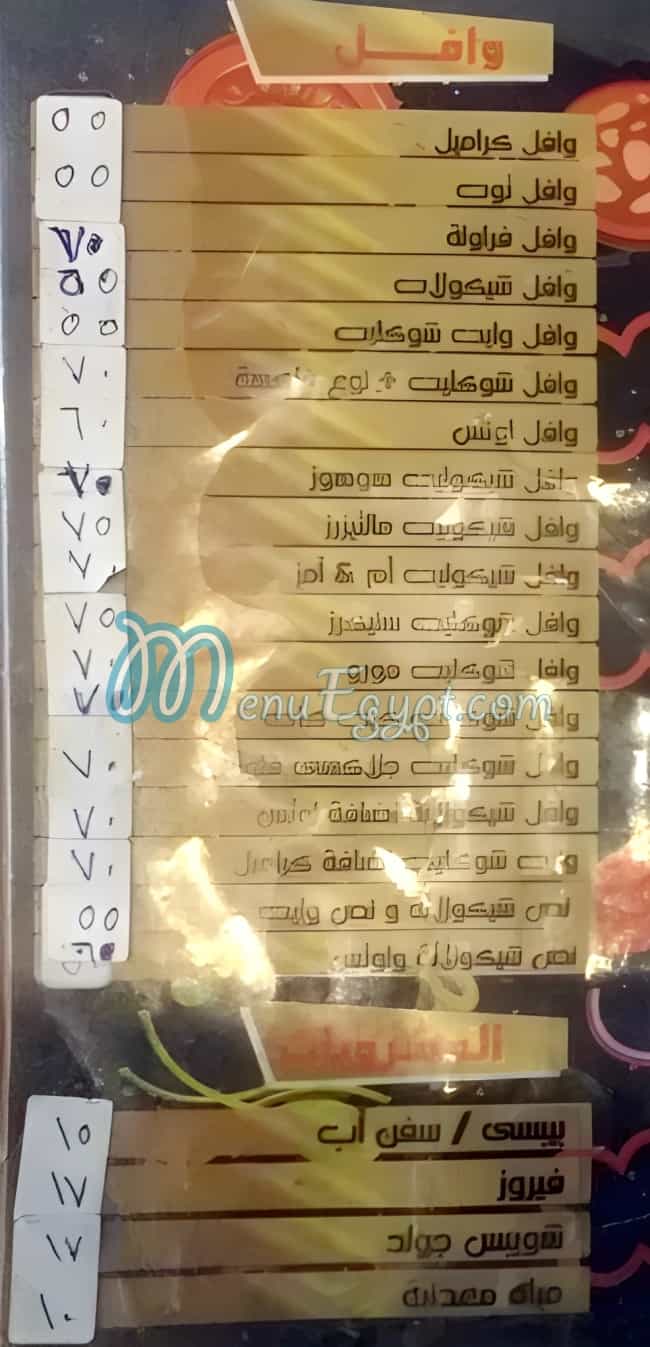 وافل
وافل كراميل ٥٥
وافل لوت ٥٥
وافل فراولة ٧٠
وافل شيكولات ٥٥
وافل وايت شوكليت ٥٥
وافل شوكليت + نوع ٧٠
وافل اونس ٦٠
وافل شيكوليت هوهوز ٧٠
وافل شيكوليت مالتيزرز ٧٥
وافل شيكوليت أم & أمز ٧٠
وافل شوكليت سنيكرز ٧٥
وافل شوكليت مورو ٧٠
وافل شوكليت كيت ٧٥
وافل شوكليت جلاكسى ٧٠
وافل شيكولاتة اضافة اونس ٧٠
وايت شوكليت اضافة كراميل ٧٠
نص شيكولاتة و نص وايت ٥٥
نص شيكولاتة واونس
MenuEgypt.com
المشروبات
بيبسى / سفن أب ١٥
فيروز ١٧
شويبس جولد ١٧
مياه معدنية ١٠